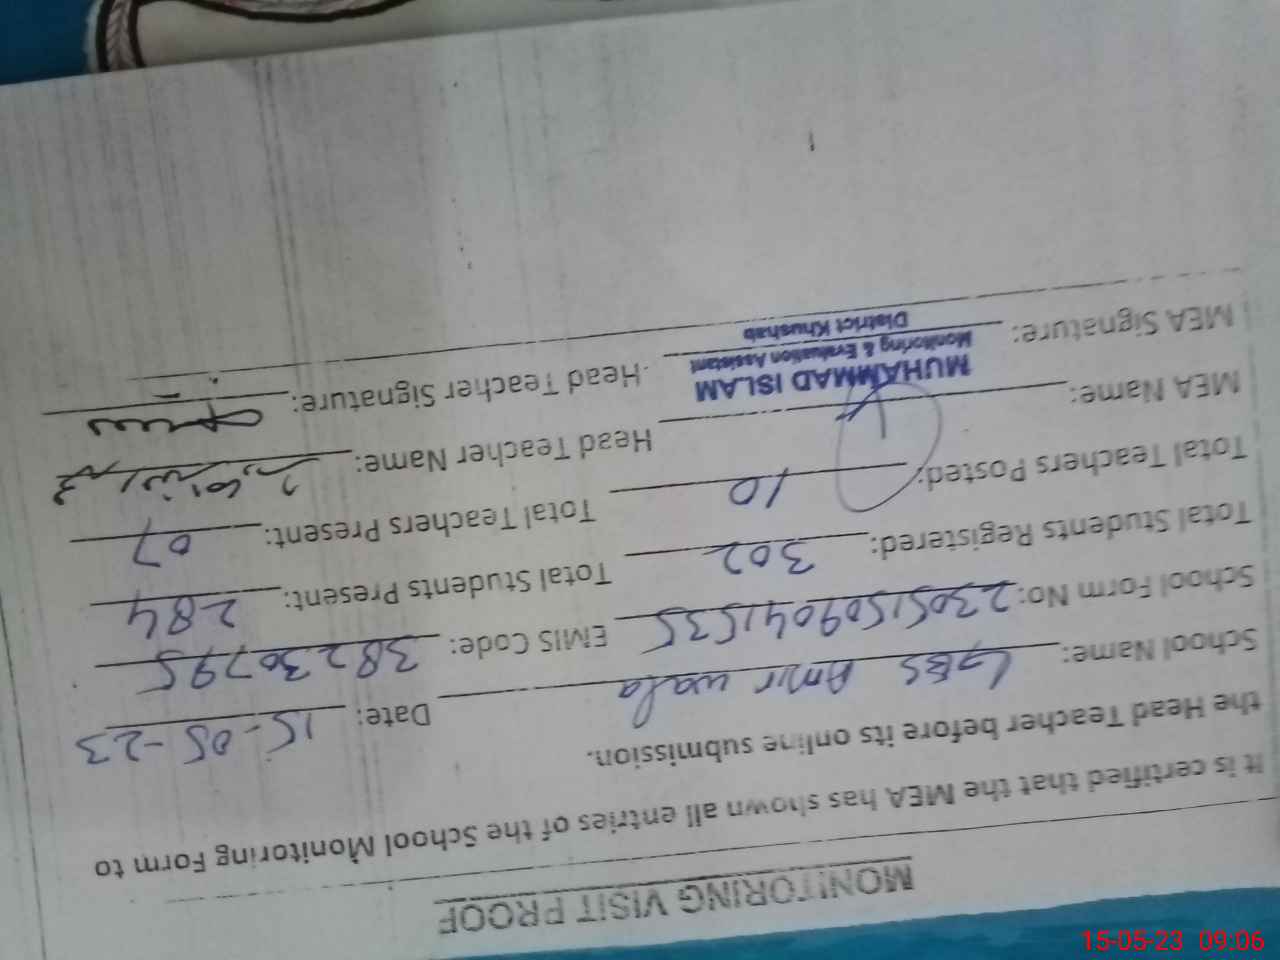 MONITORING VISIT PROOF
It is certified that the MEA has shown all entries of the School Monitoring Form to
the Head Teacher before its online submission.
School Name: GGES Amir wala Date: 15-05-23
School Form No: 230515090041535 EMIS Code: 38230795
Total Students Registered: 302 Total Students Present: 284
Total Teachers Posted: 10 Total Teachers Present: 07
MEA Name: Head Teacher Name:
MUHAMMAD ISLAM
Monitoring & Evaluation Assistant
District Khushab
MEA Signature: Head Teacher Signature:
15-05-23 09:06